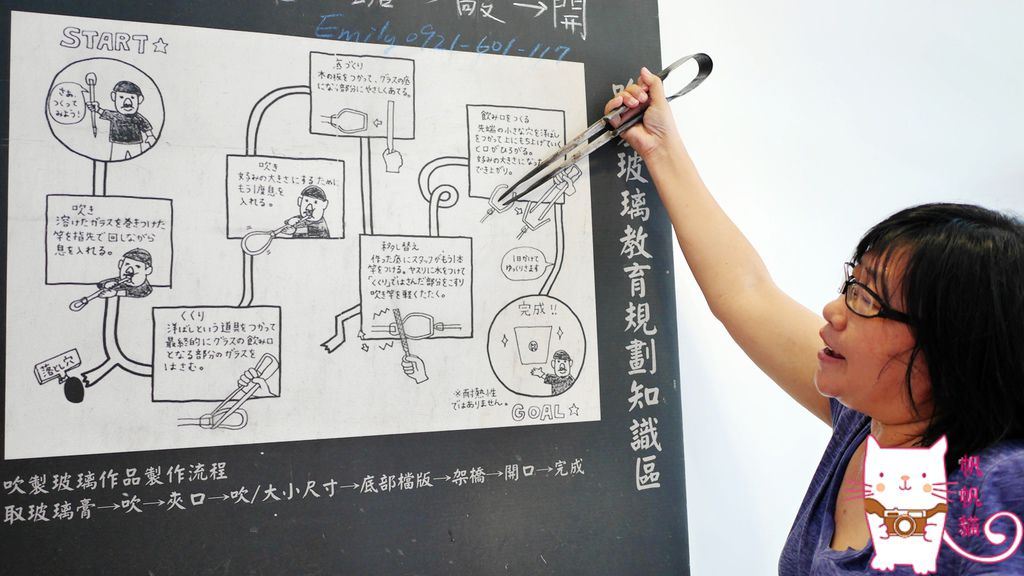 開
Emily 0921-601-117
START☆
さあ、
つくって
みよう!
吹き
溶けたガラスを巻きつけた
竿を指先で回しながら
息を入れる。
落とし穴
くくり
洋ばしという道具をつかって
最終的にグラスの飲み口
となる部分のガラスを
はさむ。
吹き
好みの大きさにするために
もう1度息を
入れる。
底づくり
木の板をつかって、グラスの底
になる部分にやさしくあてる。
移し替え
作った底にスタッフがもう1本
竿をつける。ヤスリに水をつけて
「くくり」ではさんだ部分をこすり
吹き竿を軽くたたく。
飲み口をつくる
先端の小さな穴を洋ばし
をつかって上にもち上げていく
と口がひろがる。
好みの大きさになった
でき上がり。
1日かけて
ゆっくりさます
完成!!
※耐熱性
ではありません。
GOAL☆
玻璃教育規劃知識區
吹製玻璃作品製作流程
取玻璃膏→吹→夾口→吹/大小尺寸→底部檔版→架橋→開口→完成
帆帆貓